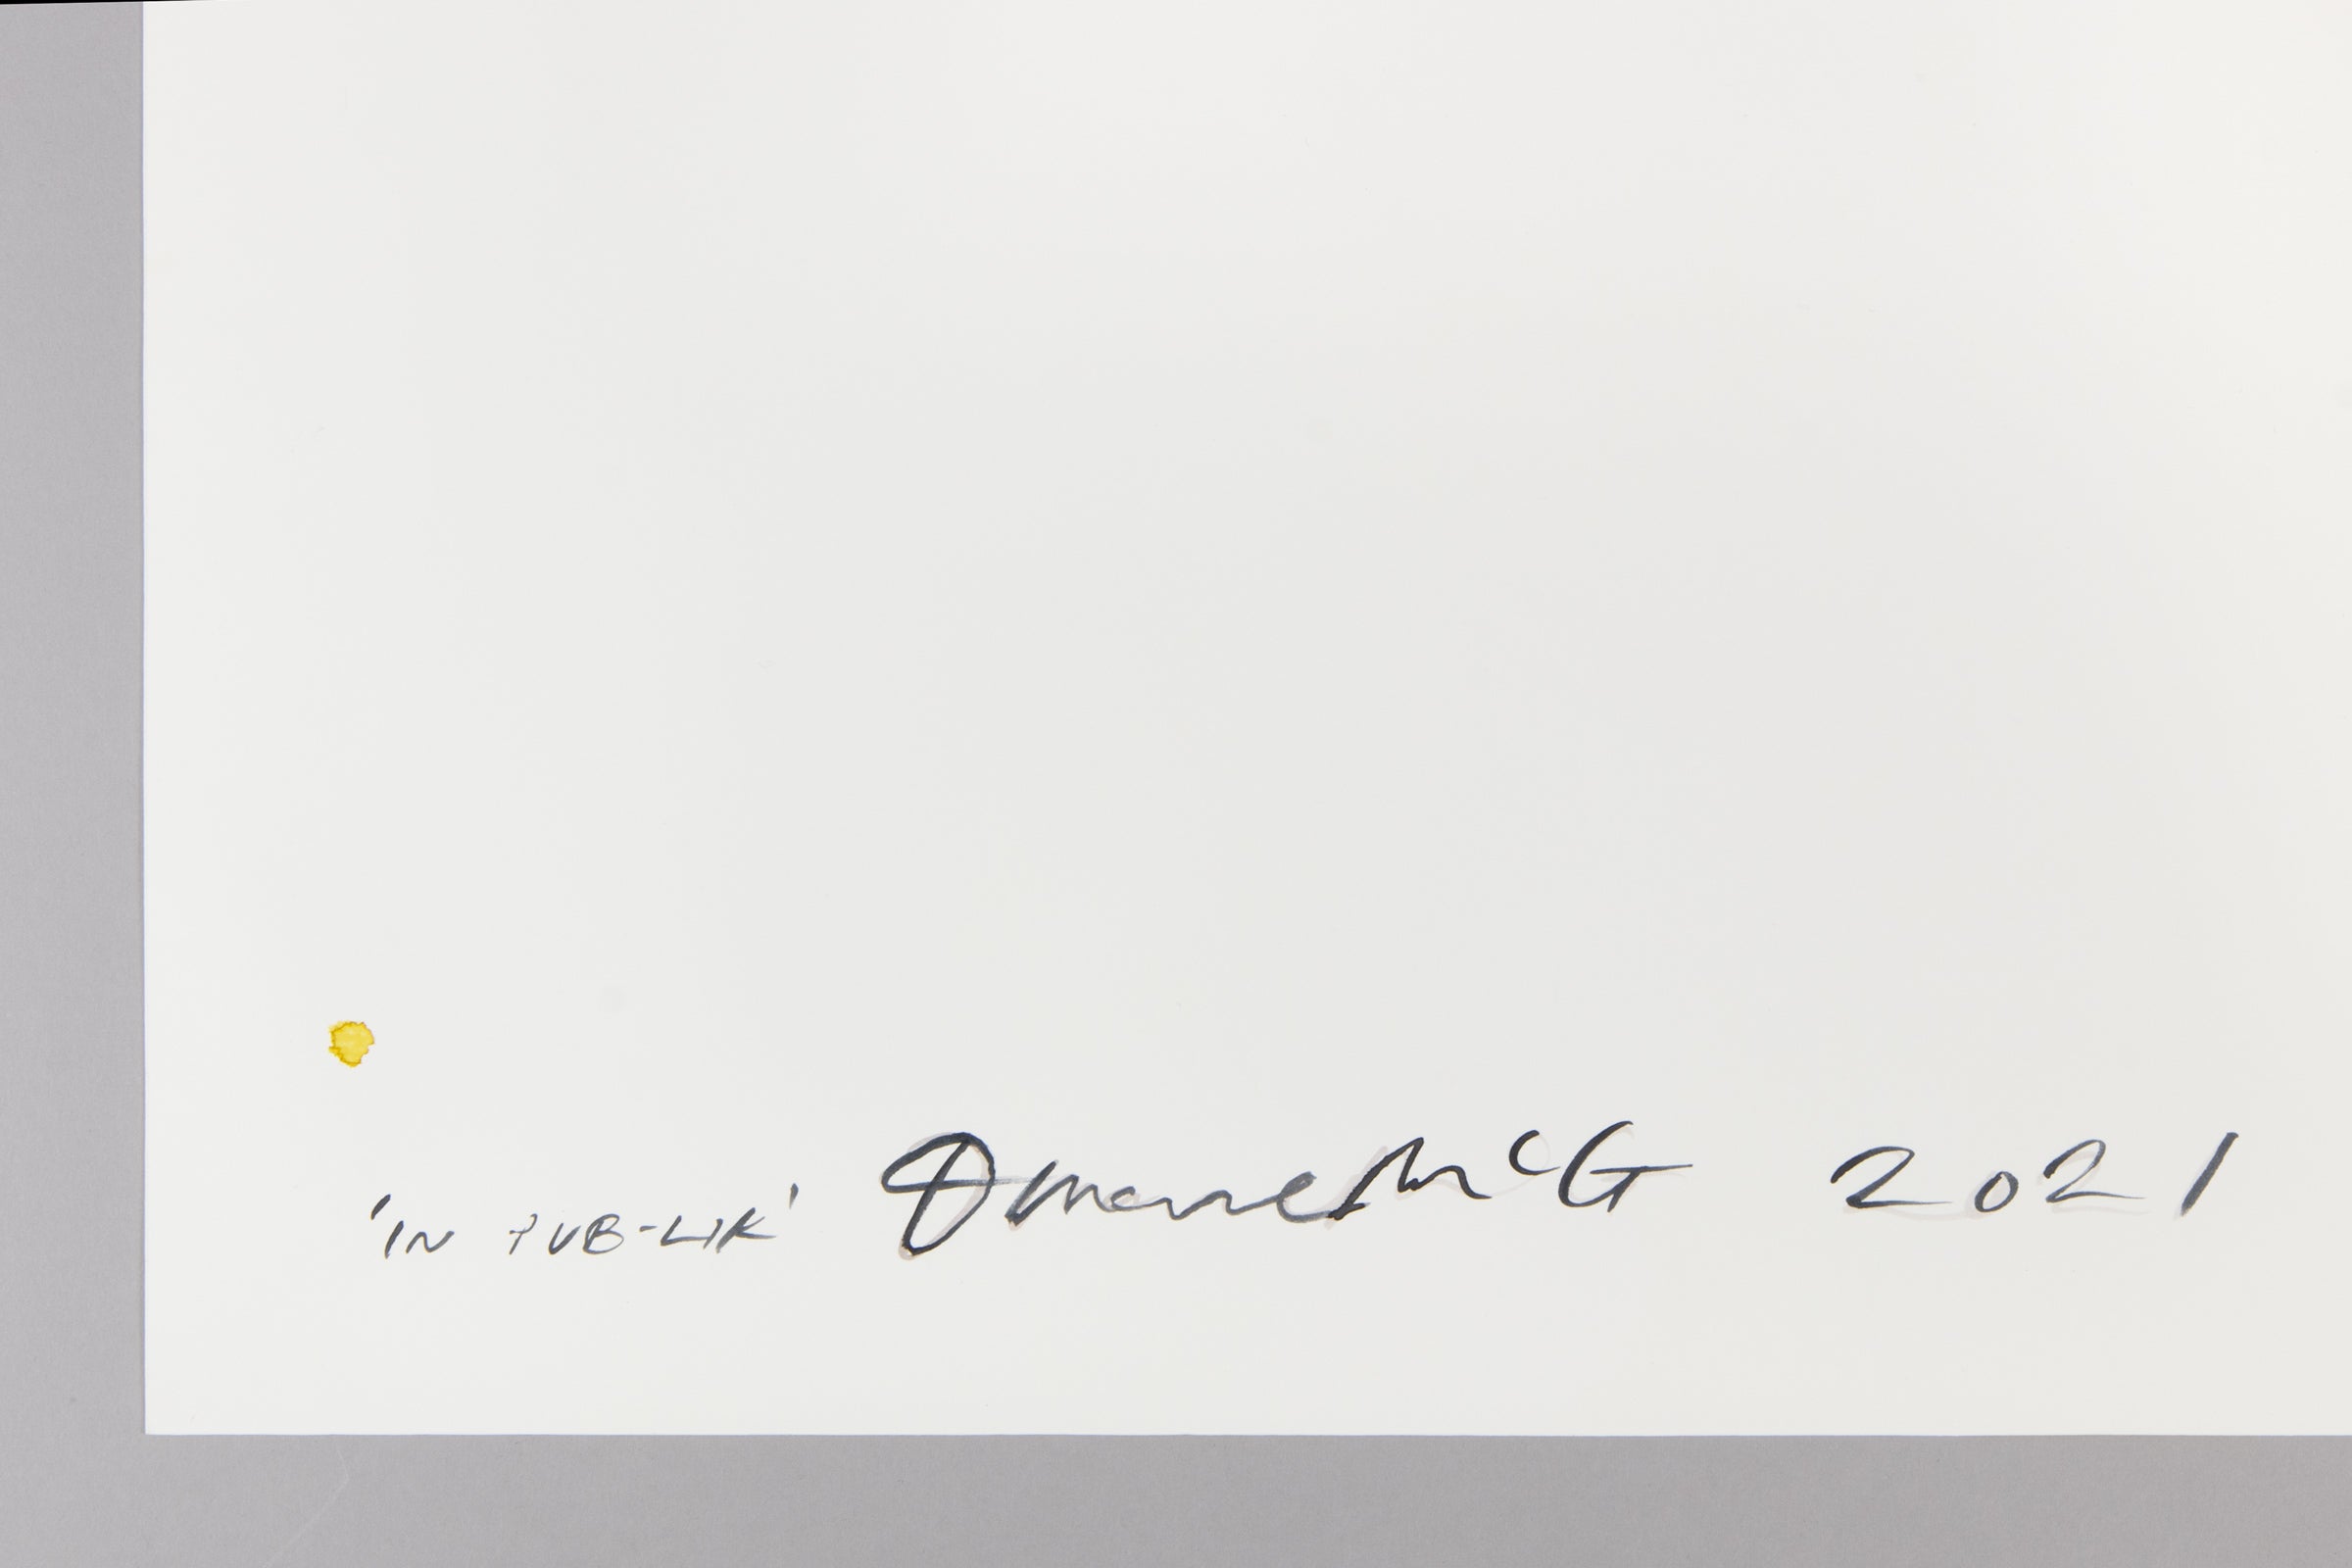 'IN PUB-LIK' McG 2021